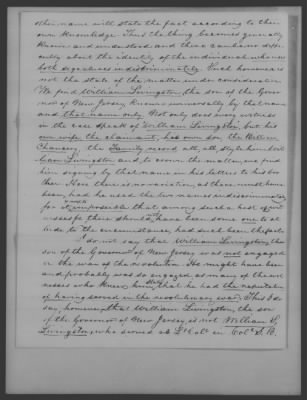 other name will state the fact according to their
own knowledge. Thus the thing becomes generally
known and understood and there can be no diffi-
culty about the identity of the individual whoever
both appellations indiscriminately. Such however is
not the state of the matter under consideration.
We find William Livingston, the son of the Gover-
nor of New Jersey, known universally by that name
and that name only. Not only does every witness
in the case speak of William Livingston, but his
own wife the claimant, his own son, the Bill in
Chancery, the Family record all, all, style him Wil-
liam Livingston and, to crown the matter, we find
him signing by that name in his letters to his bro
ther. Now there is no variation, as there must have
been, had he used the two names indiscriminately
for it is impossible that among such a host of wit-
nesses for there should not have been some one to al-
lude to the circumstance, had such been the fact.
I do not say that William Livingston, the
son of the Governor of New Jersey was not engaged
in the war of the revolution. He might have been
and probably was so engaged, as many of the wit-
nesses who knew him, say that he had the reputation
of having served in the revolutionary war. This I do
say, however, that William Livingston, the son
of the Governor of New Jersey, is not William S.
Livingston, who served as Lt. Col. in Col. S. B.